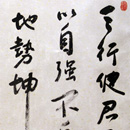 天行健君
以自强不
地勢坤